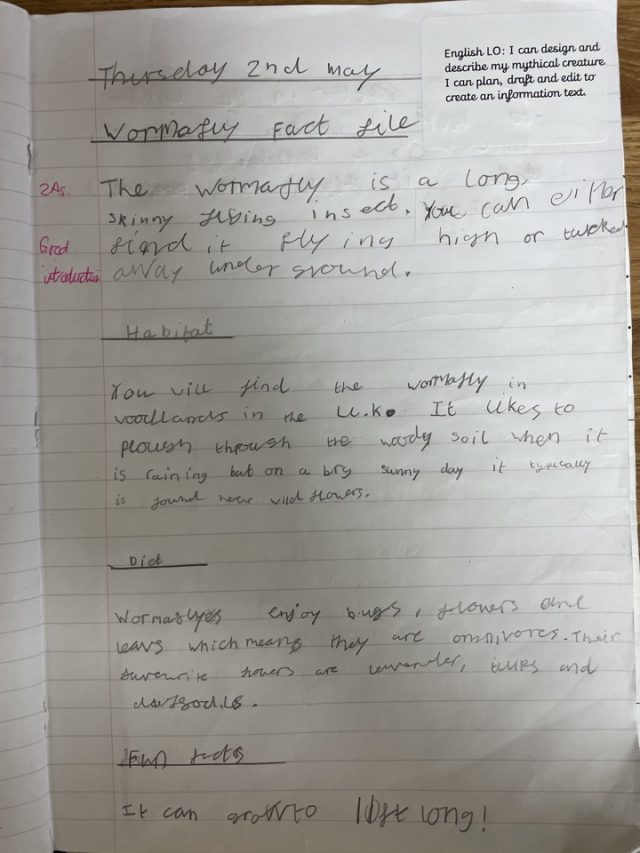 English LO: I can design and
describe my mythical creature
I can plan, draft and edit to
create an information text.
Thursday 2nd may
Wormafly Fact file
2As.
The wormafly is a long,
skinny flying insect. You can either
Good
find it flying high or tucked
introduction
away under ground.
Habitat
You will find the wormafly in
woodlands in the U.K. It likes to
plough through the woody soil when it
is raining but on a bry sunny day it typically
is found near wild flowers.
Diet
Wormaflyes enjoy bugs, flowers and
leavs which means they are omnivores. Their
favourite flowers are lavender, tulips and
daffodils.
Fun facts
It can grow to long!